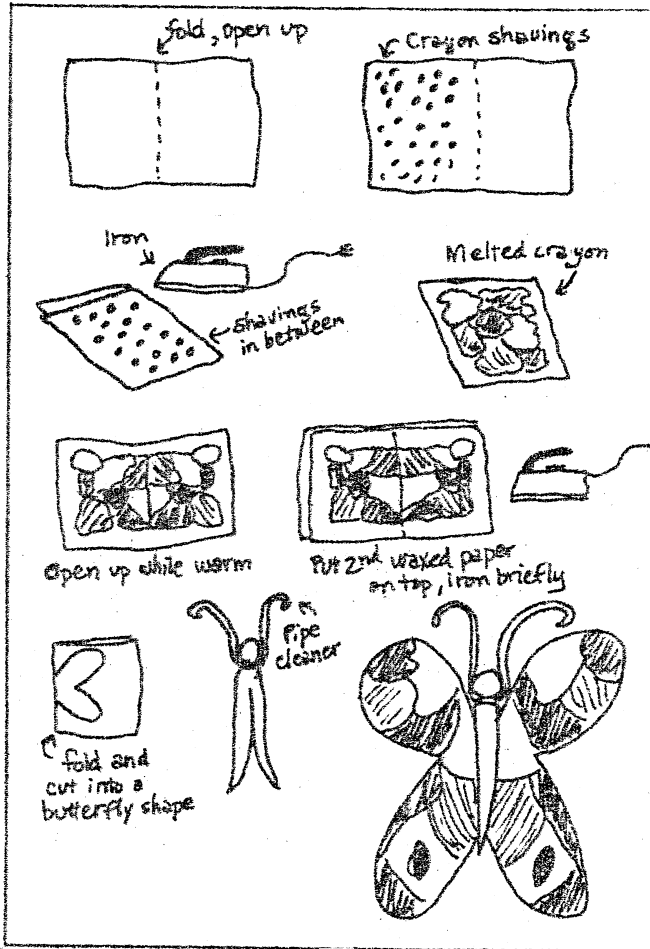 fold, open up
Crayon shavings
Iron
shavings
in between
Melted crayon
Open up while warm
Put 2nd waxed paper
on top, iron briefly
Pipe
cleaner
fold and
cut into a
butterfly shape